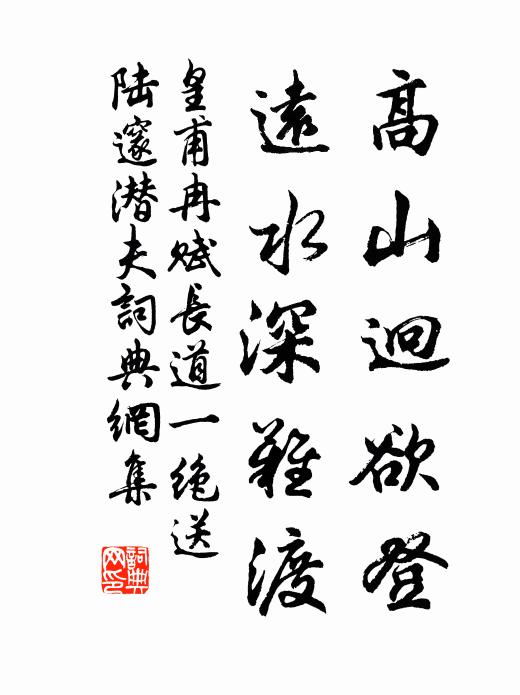 高山迥欲登
遠水深難渡
皇甫冉賦長道一絶送
陸邃潜夫詞典網集
詞典
网印